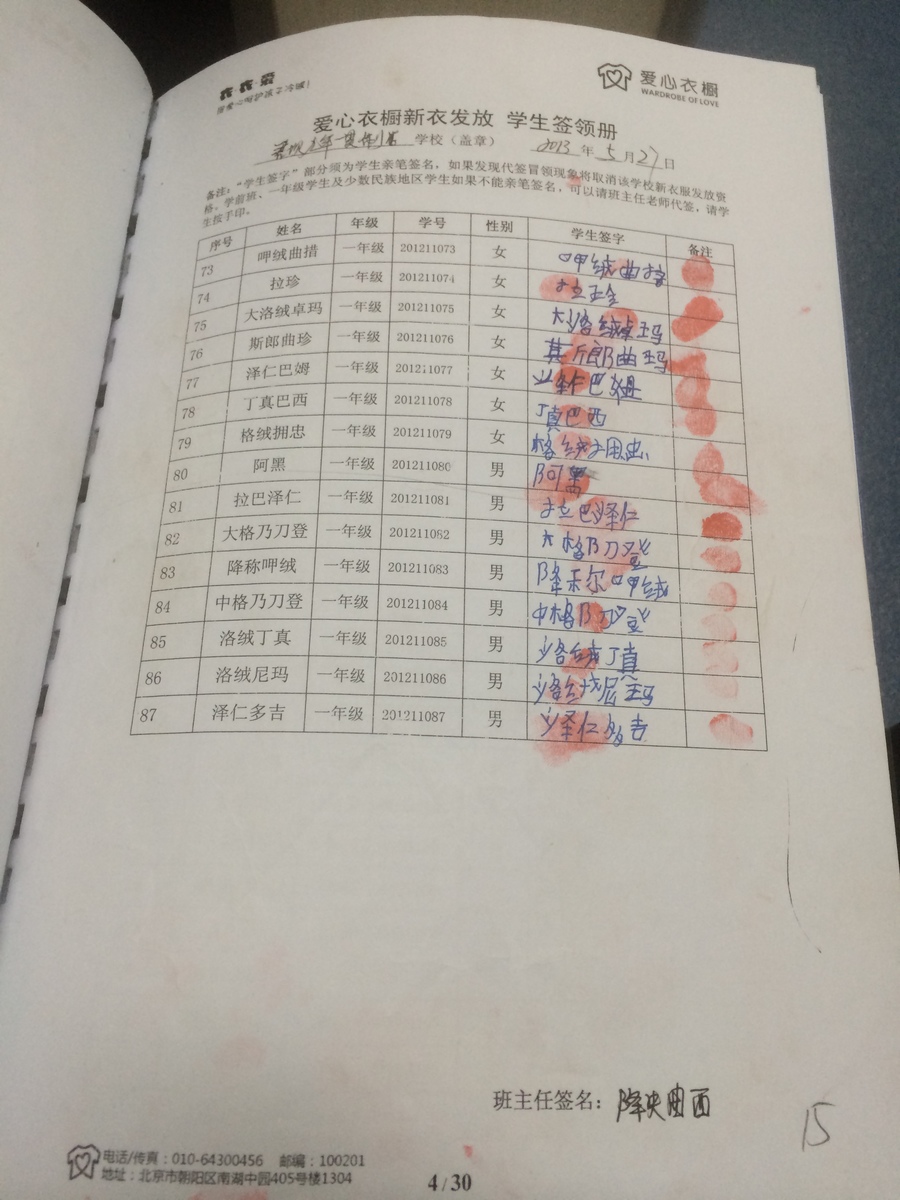 衣·衣·爱
爱心衣橱
WARDROBE OF LOVE
爱心衣橱新衣发放 学生签领册
学校（盖章） 2013 年 5 月 27 日
备注：“学生签字”部分须为学生亲笔签名，如果发现代签冒领现象将取消该学校新衣服发放资
格。学前班、一年级学生及少数民族地区学生如果不能亲笔签名，可以请班主任老师代签，请学
生按手印。
序号 姓名 年级 学号 性别 学生签字 备注
73 呷绒曲措 一年级 201211073 女 呷绒曲措
74 拉珍 一年级 201211074 女 拉
75 大洛绒卓玛 一年级 201211075 女 大洛绒卓玛
76 斯郎曲珍 一年级 201211076 女 斯郎曲玛
77 泽仁巴姆 一年级 201211077 女 巴姆
78 丁真巴西 一年级 201211078 女 丁真巴西
79 格绒拥忠 一年级 201211079 女 格绒拥忠
80 阿黑 一年级 201211080 男 阿黑
81 拉巴泽仁 一年级 201211081 男 拉巴泽仁
82 大格乃刀登 一年级 201211082 男 大格乃刀登
83 降称呷绒 一年级 201211083 男 降称呷绒
84 中格乃刀登 一年级 201211084 男 中格乃刀登
85 洛绒丁真 一年级 201211085 男 洛绒丁真
86 洛绒尼玛 一年级 201211086 男 洛绒尼玛
87 泽仁多吉 一年级 201211087 男 泽仁多吉
班主任签名：降央曲西
15
电话/传真：010-64300456 邮编：100201
地址：北京市朝阳区南湖中园405号楼1304
4/30